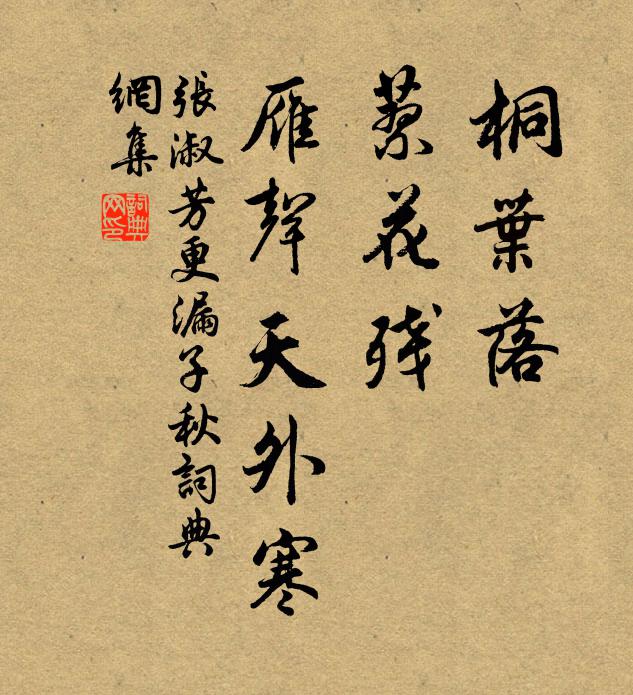 桐葉落
蓼花残
雁聲天外寒
張淑芳更漏子秋詞典
網集
詞典
网印